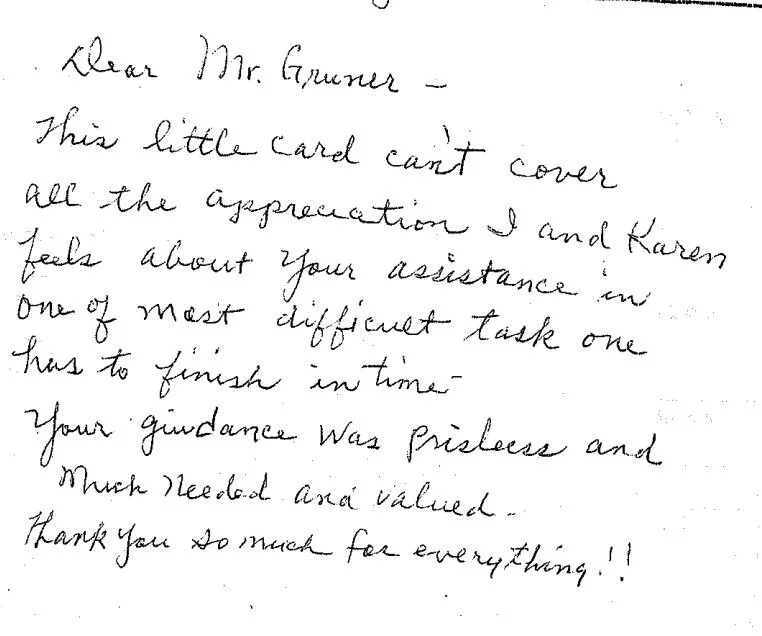 Dear Mr. Gruner –
This little card can't cover
all the appreciation I and Karen
feels about your assistance in
one of most difficult task one
has to finish in time –
Your giudance was prisleess and
Much needed and valued –
Thank you so much for everything!!